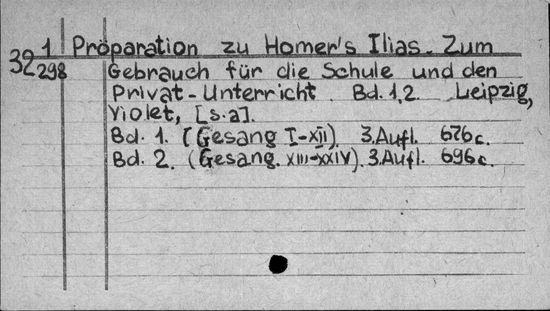 1 Pröparation zu Homer's Ilias. Zum
32 298 Gebrauch für die Schule und den
Privat-Unterricht. Bd. 1,2. Leipzig,
Violet, [s.a].
Bd. 1. (Gesang I-XII). 3.Aufl. 676c.
Bd. 2. (Gesang. XIII-XXIV). 3.Aufl. 696c.